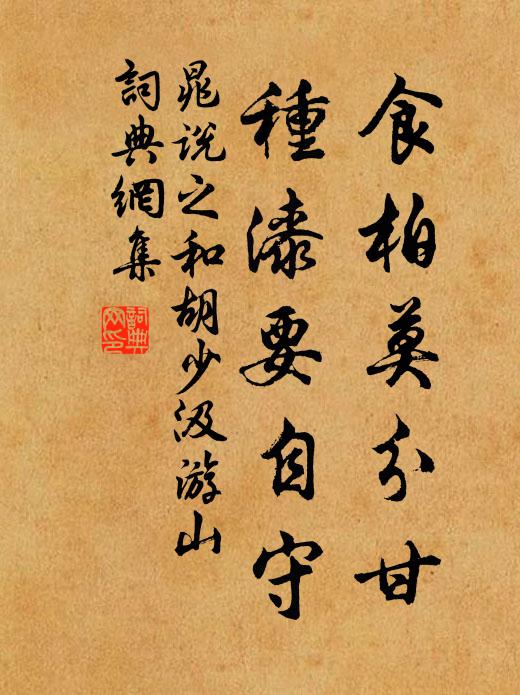 食柏莫分甘
種漆要自守
晁說之和胡少汲游山
詞典網集
詞典網印